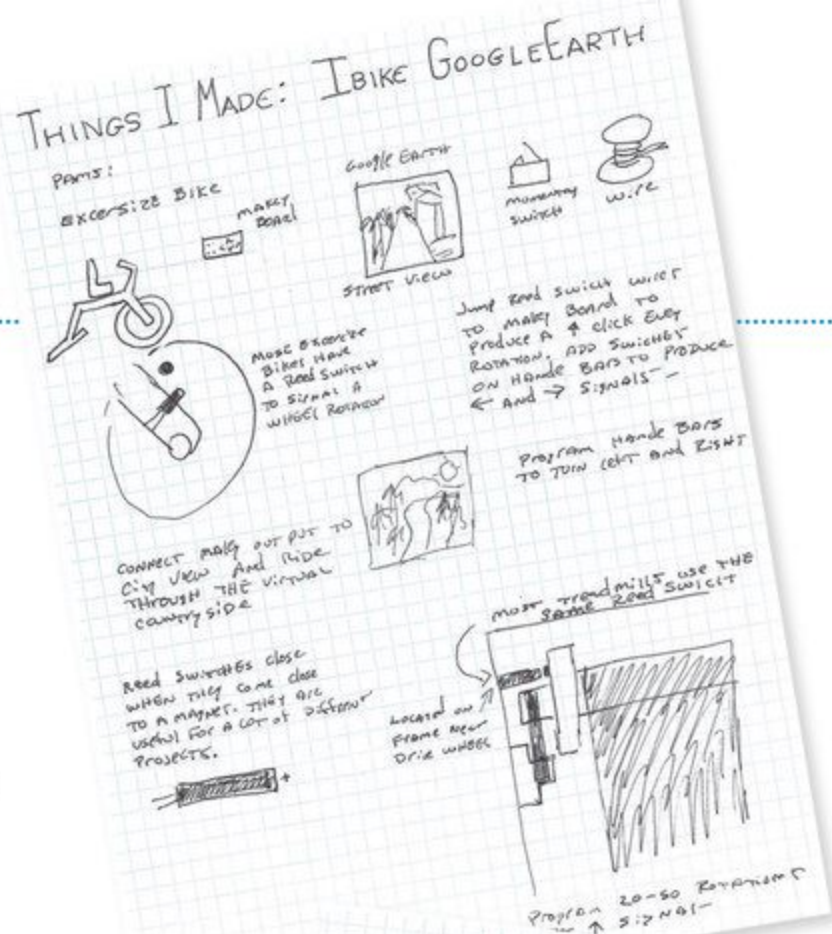 THINGS I MADE: IBIKE GOOGLEEARTH
PARTS:
EXCERSIZE BIKE
MAKEY
BOARD
GOOGLE EARTH
STREET VIEW
MOMENTRY
SWITCH
WIRE
MOSE EXCERSIZE
BIKES HAVE
A REED SWITCH
TO SIGNAL A
WHEEL ROTATION
JUMP REED SWICH WIRES
TO MAKEY BOARD TO
PRODUCE A ↑ CLICK EVERY
ROTATION. ADD SWICHES
ON HANDE BARS TO PRODUCE
← AND → SIGNALS
PROGRAM HANDE BARS
TO TURN LEFT AND RIGHT
CONNECT MAKEY OUT PUT TO
CITY VIEW AND RIDE
THROUGH THE VIRTUAL
COUNTRY SIDE
MOST TREADMILLS USE THE
SAME REED SWICH
REED SWITCHES CLOSE
WHEN THEY COME CLOSE
TO A MAGNET. THEY ARE
USEFUL FOR A LOT OF DIFFERENT
PROJECTS.
LOCATED ON
FRAME NEAR
DRIVE WHEEL
+
PROGRAM 20-50 ROTATIONS
↑ SIGNAL